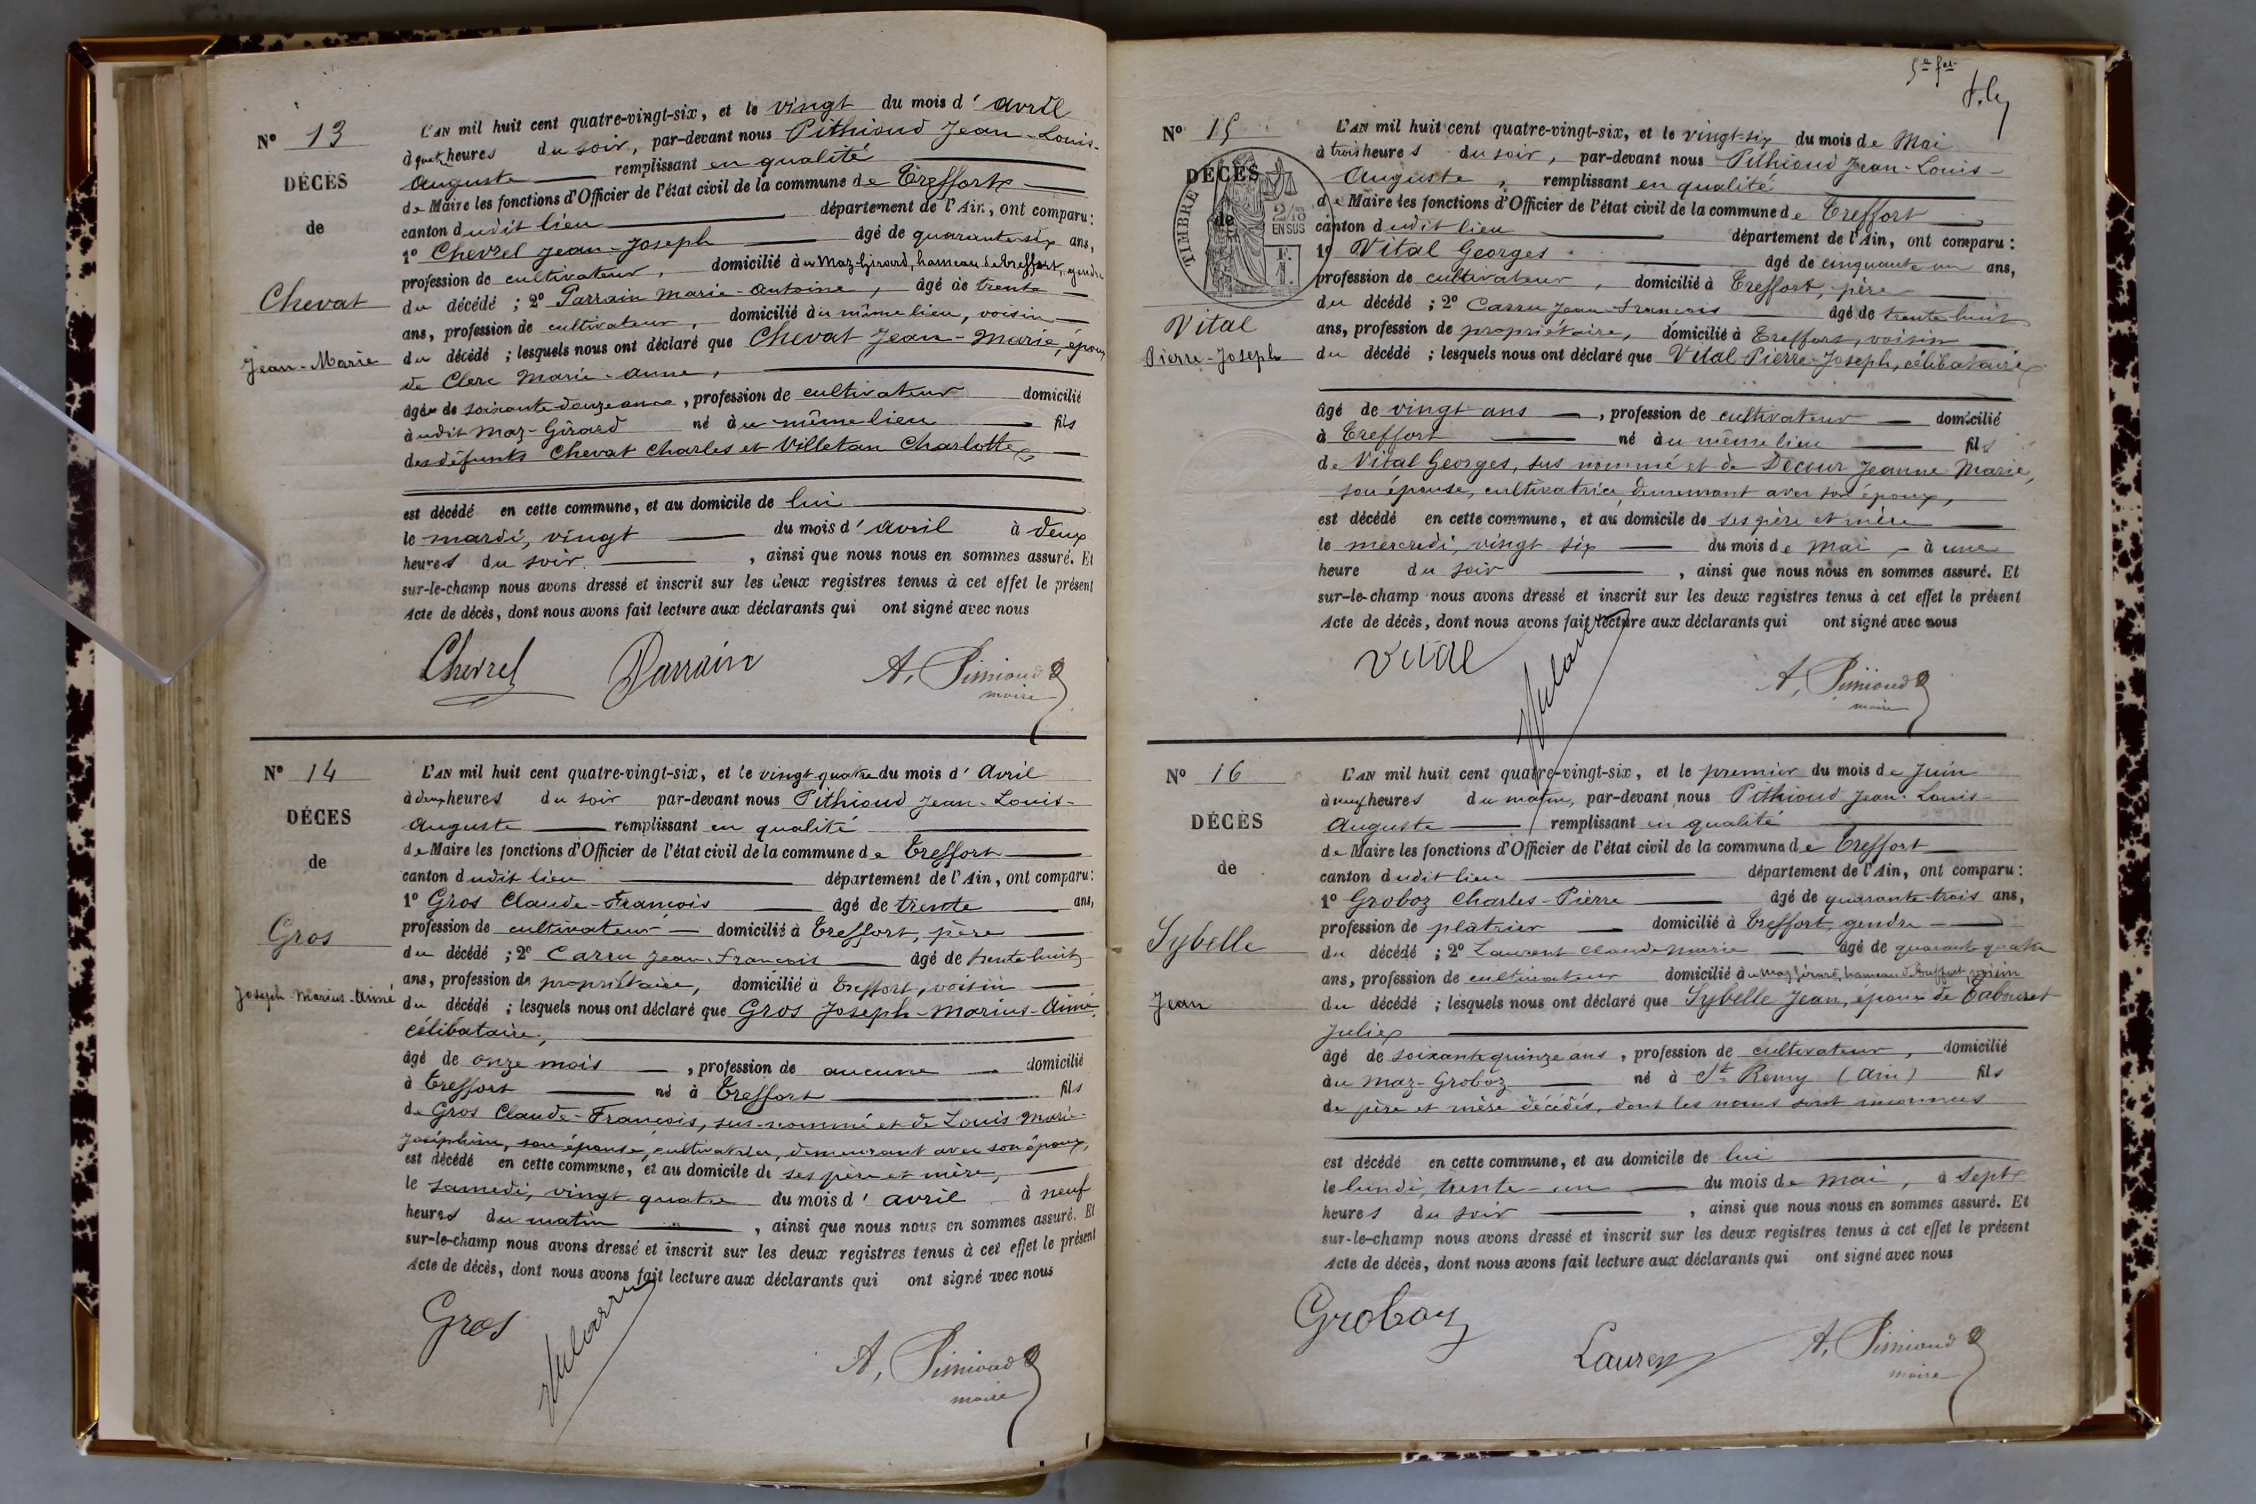 Nº 13
DÉCÈS
de
Chevat
Jean-Marie
L'AN mil huit cent quatre-vingt-six, et le vingt du mois d' avril
à quatre heures du soir, par-devant nous Pithioud Jean-Louis-
Auguste remplissant en qualité
de Maire les fonctions d'Officier de l'état civil de la commune de Treffort
canton dudit lieu département de l'Ain, ont comparu:
1º Chevrel Jean-Joseph âgé de quarante-six ans,
profession de cultivateur, domicilié au Maz-Girard, hameau de Treffort, gendre
du décédé ; 2º Parrain Marie-Antoine, âgé de trente
ans, profession de cultivateur, domicilié du même lieu, voisin
du décédé ; lesquels nous ont déclaré que Chevat Jean-Marie, époux
de Clerc Marie-Anne,
âgé de soixante-douze ans, profession de cultivateur domicilié
audit Maz-Girard né au même lieu fils
des défunts Chevat Charles et Villetan Charlotte
est décédé en cette commune, et au domicile de lui
le mardi, vingt du mois d' avril à deux
heures du soir, ainsi que nous nous en sommes assuré. Et
sur-le-champ nous avons dressé et inscrit sur les deux registres tenus à cet effet le présent
Acte de décès, dont nous avons fait lecture aux déclarants qui ont signé avec nous
Chevrel Parrain A, Pithioud
maire
Nº 14
DÉCES
de
Gros
Joseph-Marius-Aimé
L'AN mil huit cent quatre-vingt-six, et le vingt-quatre du mois d' Avril
à deux heures du soir par-devant nous Pithioud Jean-Louis-
Auguste remplissant en qualité
de Maire les fonctions d'Officier de l'état civil de la commune de Treffort
canton dudit lieu département de l'Ain, ont comparu:
1º Gros Claude-François âgé de trente ans,
profession de cultivateur domicilié à Treffort, père
du décédé ; 2º Carru Jean-François âgé de trente-huit
ans, profession de propriétaire, domicilié à Treffort, voisin
du décédé ; lesquels nous ont déclaré que Gros Joseph-Marius-Aimé,
célibataire,
âgé de onze mois, profession de aucune domicilié
à Treffort né à Treffort fils
de Gros Claude-François, sus-nommé et de Louis Marie-
Joséphine, son épouse, cultivatrice, demeurant avec son époux,
est décédé en cette commune, et au domicile de ses père et mère,
le samedi, vingt quatre du mois d' avril à neuf
heures du matin, ainsi que nous nous en sommes assuré. Et
sur-le-champ nous avons dressé et inscrit sur les deux registres tenus à cet effet le présent
Acte de décès, dont nous avons fait lecture aux déclarants qui ont signé avec nous
Gros A, Pithioud
maire
Nº 15
DÉCÈS
de
TIMBRE
2/10
EN SUS
F.
1.
Vital
Pierre-Joseph
L'AN mil huit cent quatre-vingt-six, et le vingt-six du mois de Mai
à trois heures du soir, par-devant nous Pithioud Jean-Louis-
Auguste, remplissant en qualité
de Maire les fonctions d'Officier de l'état civil de la commune de Treffort
canton dudit lieu département de l'Ain, ont comparu :
1º Vital Georges âgé de cinquante un ans,
profession de cultivateur, domicilié à Treffort, père
du décédé ; 2º Carru Jean-François âgé de trente-huit
ans, profession de propriétaire, domicilié à Treffort, voisin
du décédé ; lesquels nous ont déclaré que Vital Pierre-Joseph, célibataire
âgé de vingt ans, profession de cultivateur domicilié
à Treffort né au même lieu fils
de Vital Georges, sus nommé et de Decour Jeanne Marie,
son épouse, cultivatrice, demeurant avec son époux,
est décédé en cette commune, et au domicile de ses père et mère
le mercredi, vingt six du mois de Mai à une
heure du soir, ainsi que nous nous en sommes assuré. Et
sur-le-champ nous avons dressé et inscrit sur les deux registres tenus à cet effet le présent
Acte de décès, dont nous avons fait lecture aux déclarants qui ont signé avec nous
Vital A, Pithioud
maire
Nº 16
DÉCÈS
de
Sybelle
Jean
L'AN mil huit cent quatre-vingt-six, et le premier du mois de Juin
à neuf heures du matin, par-devant nous Pithioud Jean-Louis-
Auguste remplissant en qualité
de Maire les fonctions d'Officier de l'état civil de la commune de Treffort
canton dudit lieu département de l'Ain, ont comparu :
1º Groboz Charles-Pierre âgé de quarante-trois ans,
profession de plâtrier domicilié à Treffort, gendre
du décédé ; 2º Laurent Claude-Marie âgé de quarante-quatre
ans, profession de cultivateur domicilié au Maz-Girard, hameau de Treffort, voisin
du décédé ; lesquels nous ont déclaré que Sybelle Jean, époux de Tabouret
Julie
âgé de soixante-quinze ans, profession de cultivateur, domicilié
au Maz-Groboz né à St Remy (Ain) fils
de père et mère décédés, dont les noms sont inconnus
est décédé en cette commune, et au domicile de lui
le lundi, trente-un du mois de Mai, à sept
heures du soir, ainsi que nous nous en sommes assuré. Et
sur-le-champ nous avons dressé et inscrit sur les deux registres tenus à cet effet le présent
Acte de décès, dont nous avons fait lecture aux déclarants qui ont signé avec nous
Groboz Laurent A, Pithioud
maire